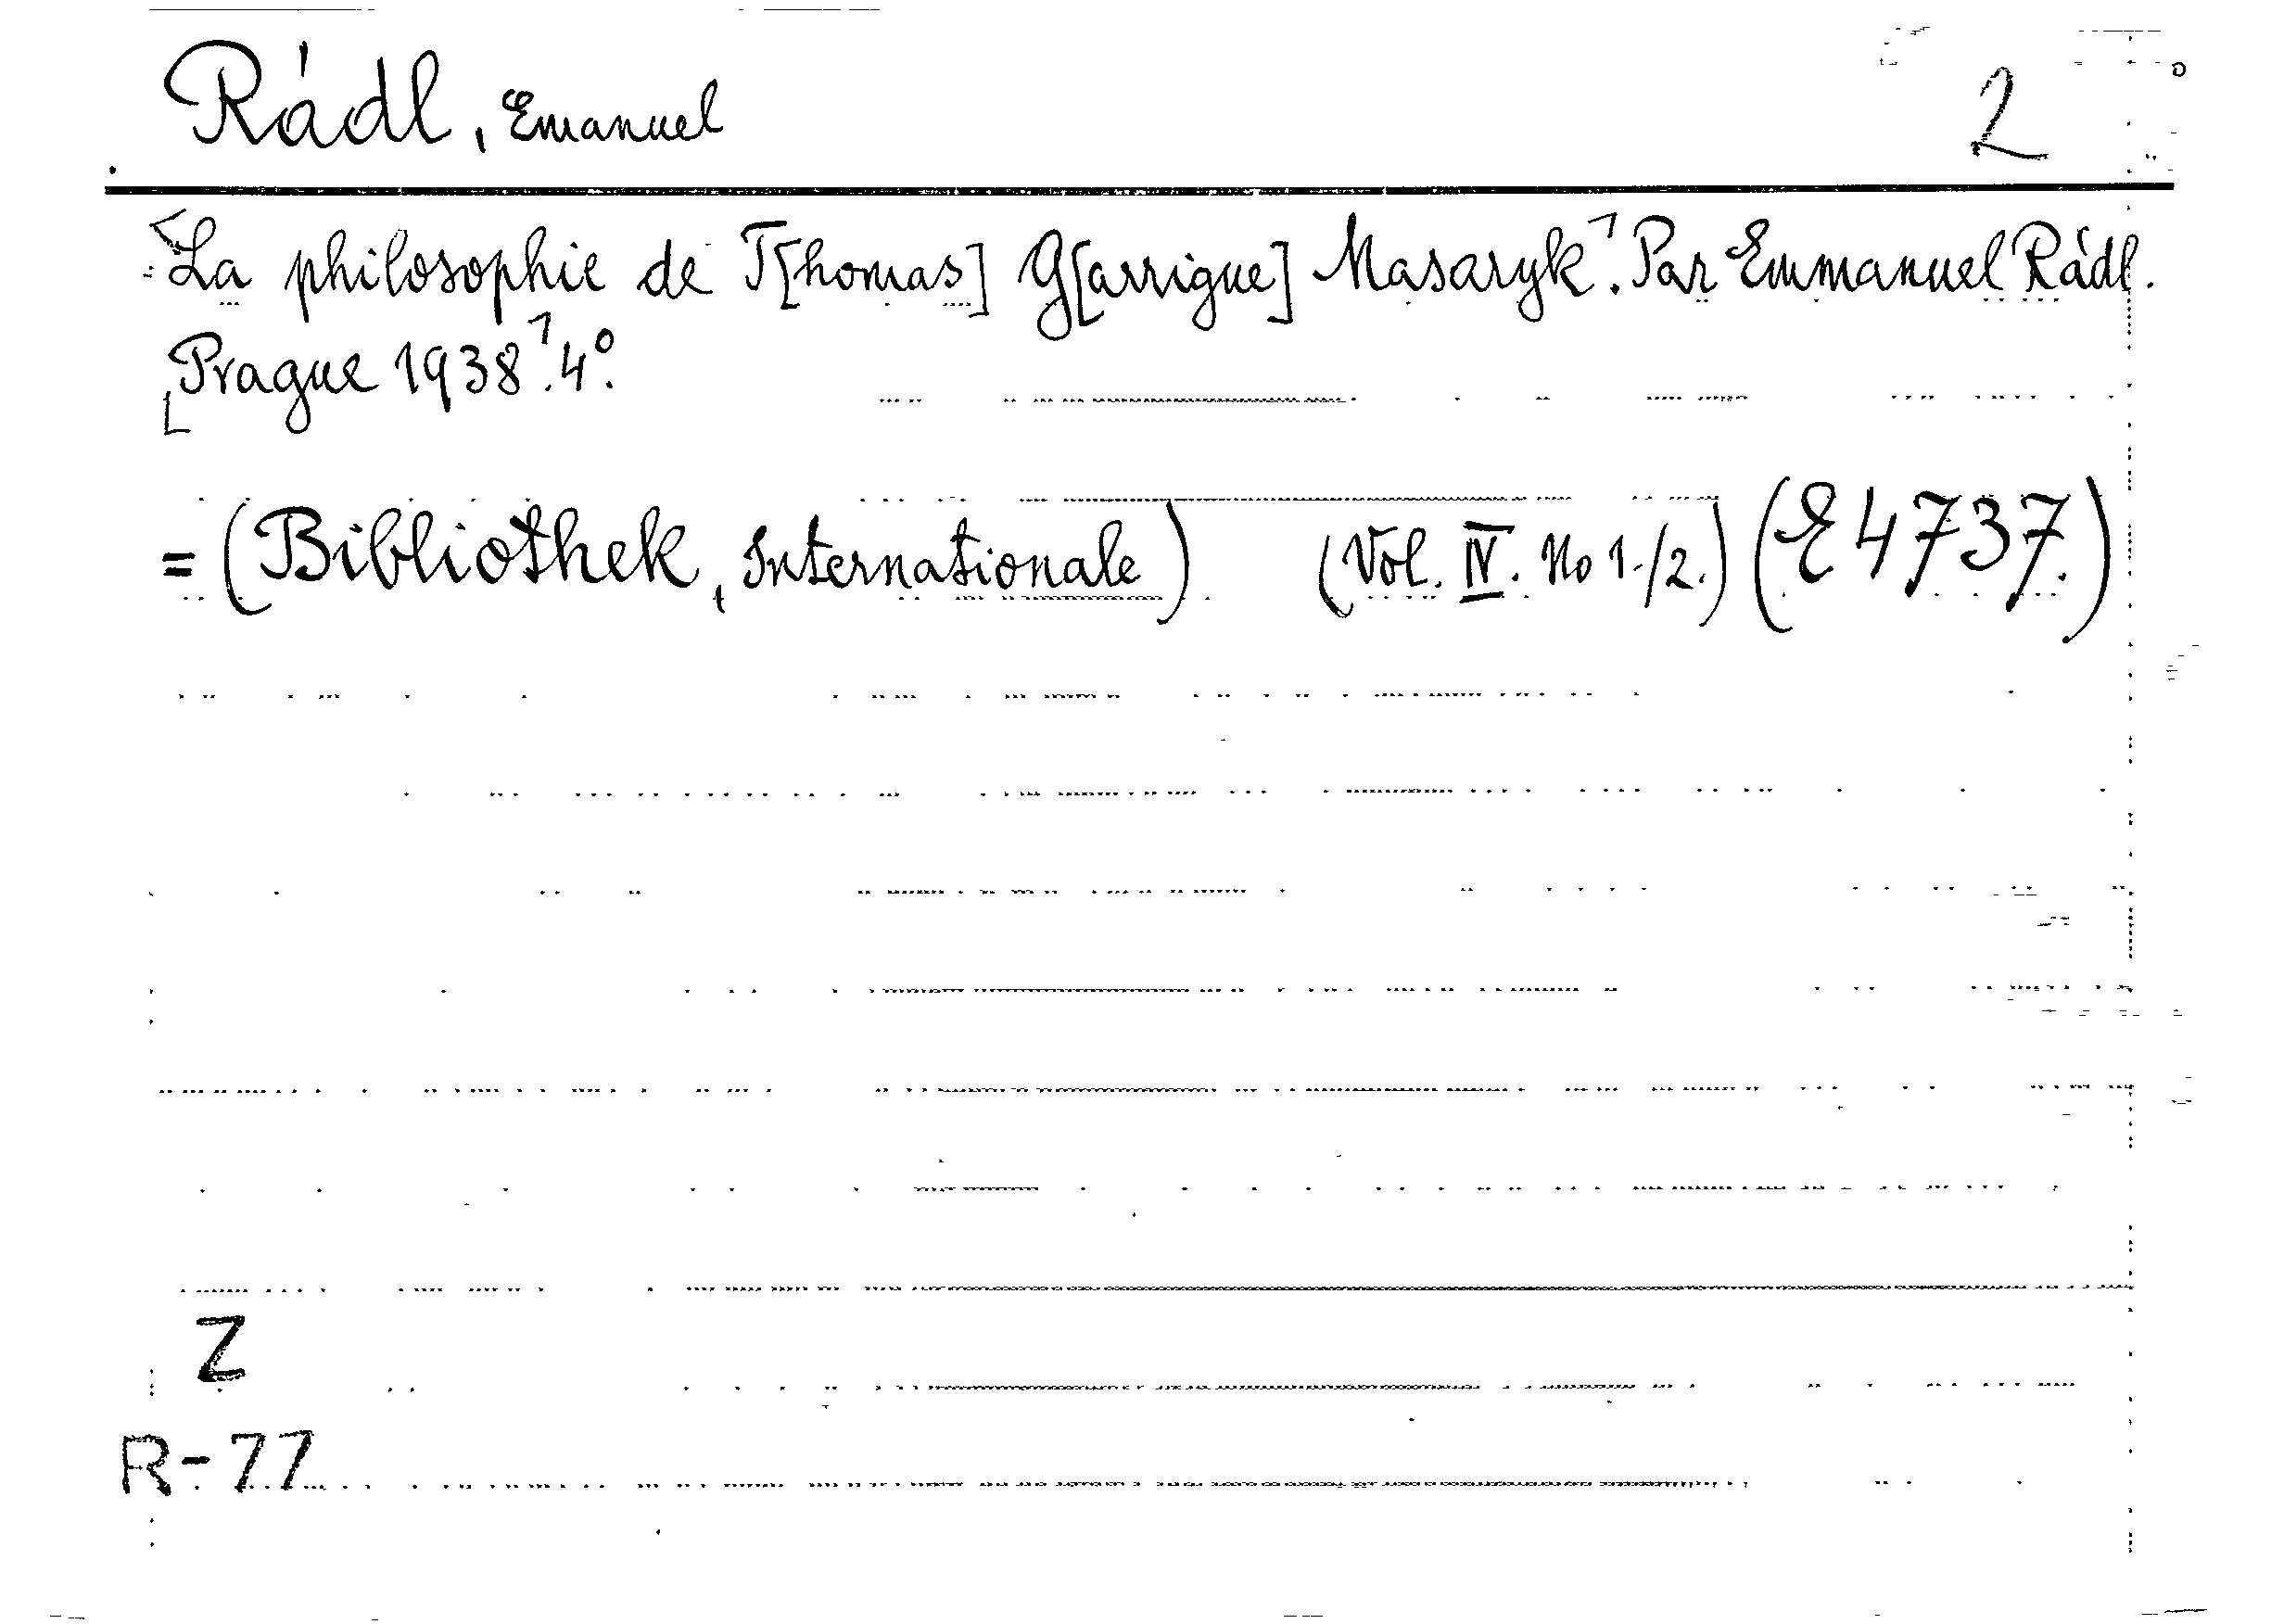 Rádl, Emanuel 2
⌈La philosophie de T[homas] G[arrigue] Masaryk⌉. Par Emmanuel Rádl.
⌊Prague 1938⌉. 4°.
= (Bibliothek, Internationale) (Vol. IV. No 1./2.) (E 4737.)
Z
R-77